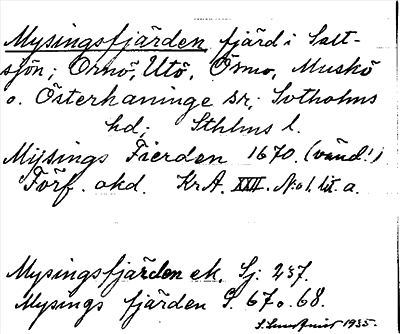 Mysingsfjärden fjärd i Salt-
sjön; Ornö, Utö, Ösmo, Muskö
o. Österhaninge sr; Sotholms
hd; Sthlms l.
Mysings Fierden 1670. (vänd!)
Förf. okd. KrA. XXII. No 1. lit. a.
Mysingsfjärden ek. Sj: 237.
Mysings fjärden S. 67 o. 68.
1935.